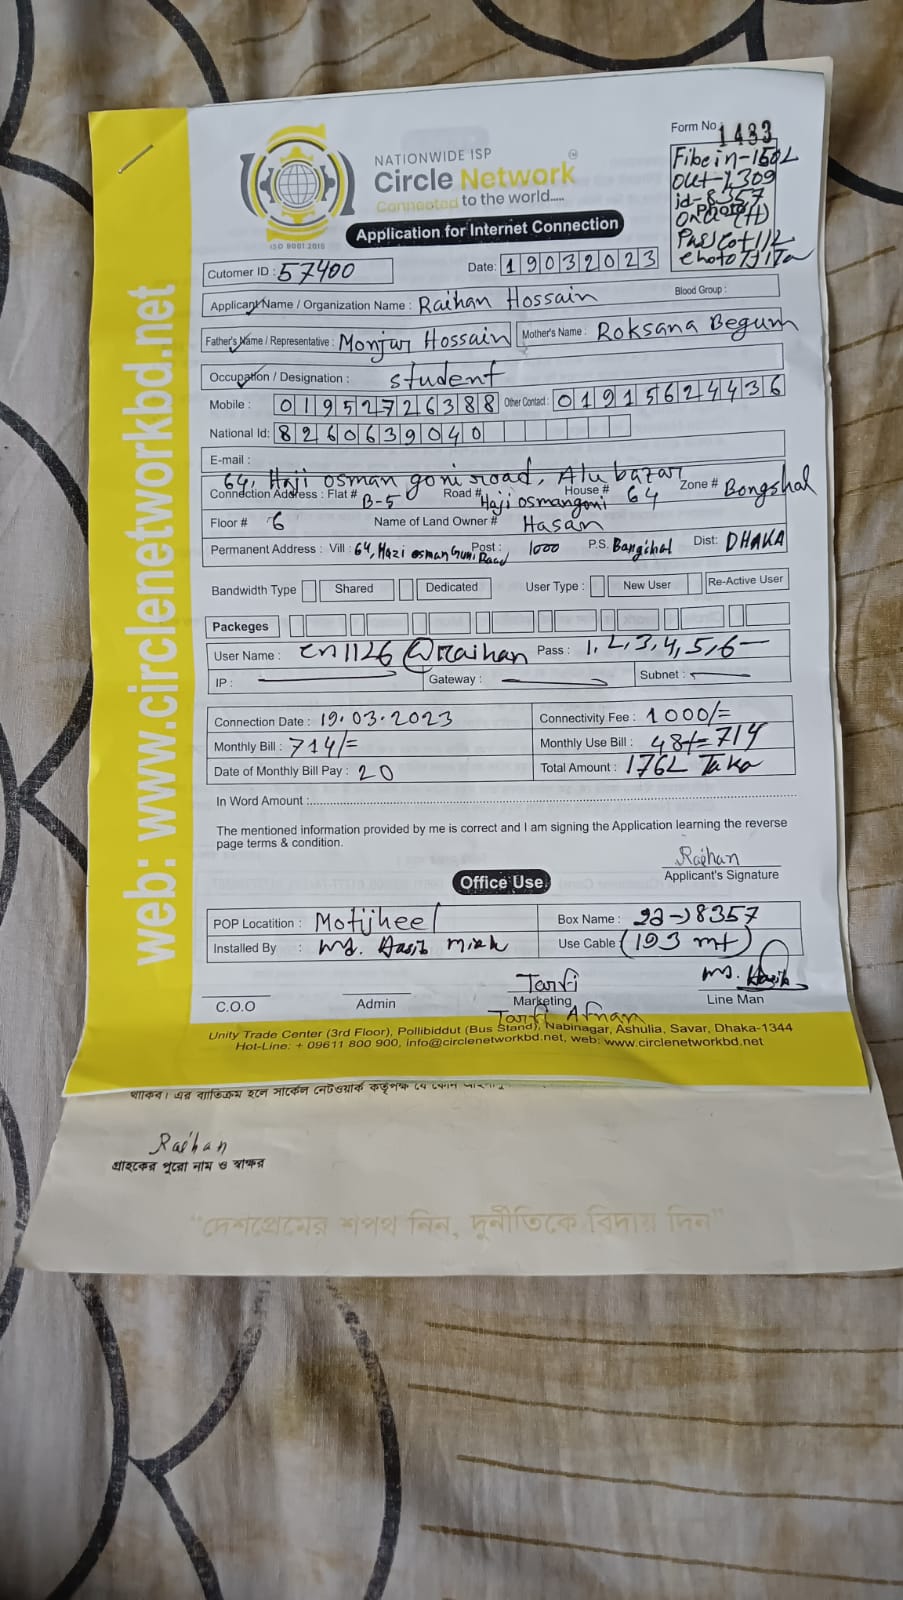 Form No : 1433
NATIONWIDE ISP
Circle Network
Connected to the world.....
ISO 9001:2015
Application for Internet Connection
Fibein-150L
Out-1309
id-8357
Photo
Cutomer ID : 57400
Date: 19032023
Applicant Name / Organization Name : Raihan Hossain
Blood Group :
Father's Name / Representative : Monjur Hossain
Mother's Name : Roksana Begum
Occupation / Designation : student
Mobile : 01952726388 Other Contact : 01915624436
National Id: 8260639040
E-mail :
64, Haji osman goni road, Alu bazar
Connection Address : Flat # B-5 Road # Haji osmangoni House # 64 Zone # Bongshal
Floor # 6 Name of Land Owner # Hasan
Permanent Address : Vill : 64, Hazi osman Guni Road Post : 1000 P.S. Bangshal Dist: DHAKA
Bandwidth Type Shared Dedicated User Type : New User Re-Active User
Packeges
User Name : cn1126@Raihan Pass : 1,2,3,4,5,6
IP : Gateway : Subnet :
Connection Date : 19.03.2023 Connectivity Fee : 1000/=
Monthly Bill : 714/= Monthly Use Bill : 48/= 714
Date of Monthly Bill Pay : 20 Total Amount : 1762 Taka
In Word Amount :
The mentioned information provided by me is correct and I am signing the Application learning the reverse
page terms & condition.
Raihan
Applicant's Signature
Office Use
POP Locatition : Motijheel Box Name : 8357
Installed By : Md. Hasib Miah Use Cable (193 mt)
Tarfi
Md. Hasib
C.O.O Admin Marketing Line Man
Tarfi Afnan
Unity Trade Center (3rd Floor), Pollibiddut (Bus Stand), Nabinagar, Ashulia, Savar, Dhaka-1344
Hot-Line: + 09611 800 900, info@circlenetworkbd.net, web: www.circlenetworkbd.net
web: www.circlenetworkbd.net
থাকিব। এর ব্যতিক্রম হলে সার্কেল নেটওয়ার্ক কর্তৃপক্ষ যে কোন
Raihan
গ্রাহকের পুরো নাম ও স্বাক্ষর
“দেশপ্রেমের শপথ নিন, দুর্নীতিকে বিদায় দিন”